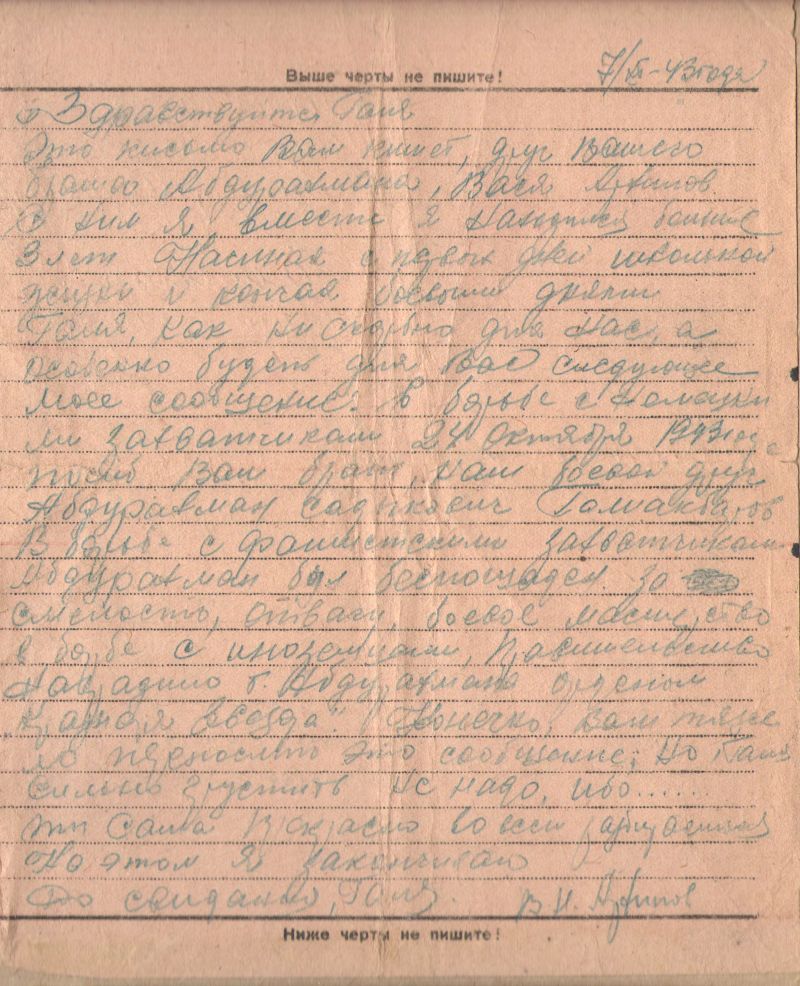 Выше черты не пишите!
7/XI-43 года
Здравствуйте Галя
Это письмо Вам пишет, друг Вашего
брата Абдурахмана, Вася Архипов.
С ним я вместе я находился больше
3 лет Начиная с первых дней школьной
жизни и кончая боевыми днями
Галя, как ни скорбно для нас, а
особенно будет для Вас следующее
мое сообщение. В борьбе с немецки
ми захватчиками 24 октября 1943 года
погиб Ваш брат, наш боевой друг
Абдурахман Садыкович Галиакбаров
В борьбе с фашистскими захватчиками
Абдурахман был беспощаден. За
смелость, отвагу, боевое мастерство
в борьбе с иноземцами, Правительство
наградило т. Абдурахмана орденом
"Красная Звезда". Конечно, Вам тяже
ло переносить это сообщение; Но Галя
сильно грустить не надо, ибо......
ты сама прекрасно во всем
На этом я заканчиваю
До свидания, Галя. В. И. Архипов
Ниже черты не пишите!